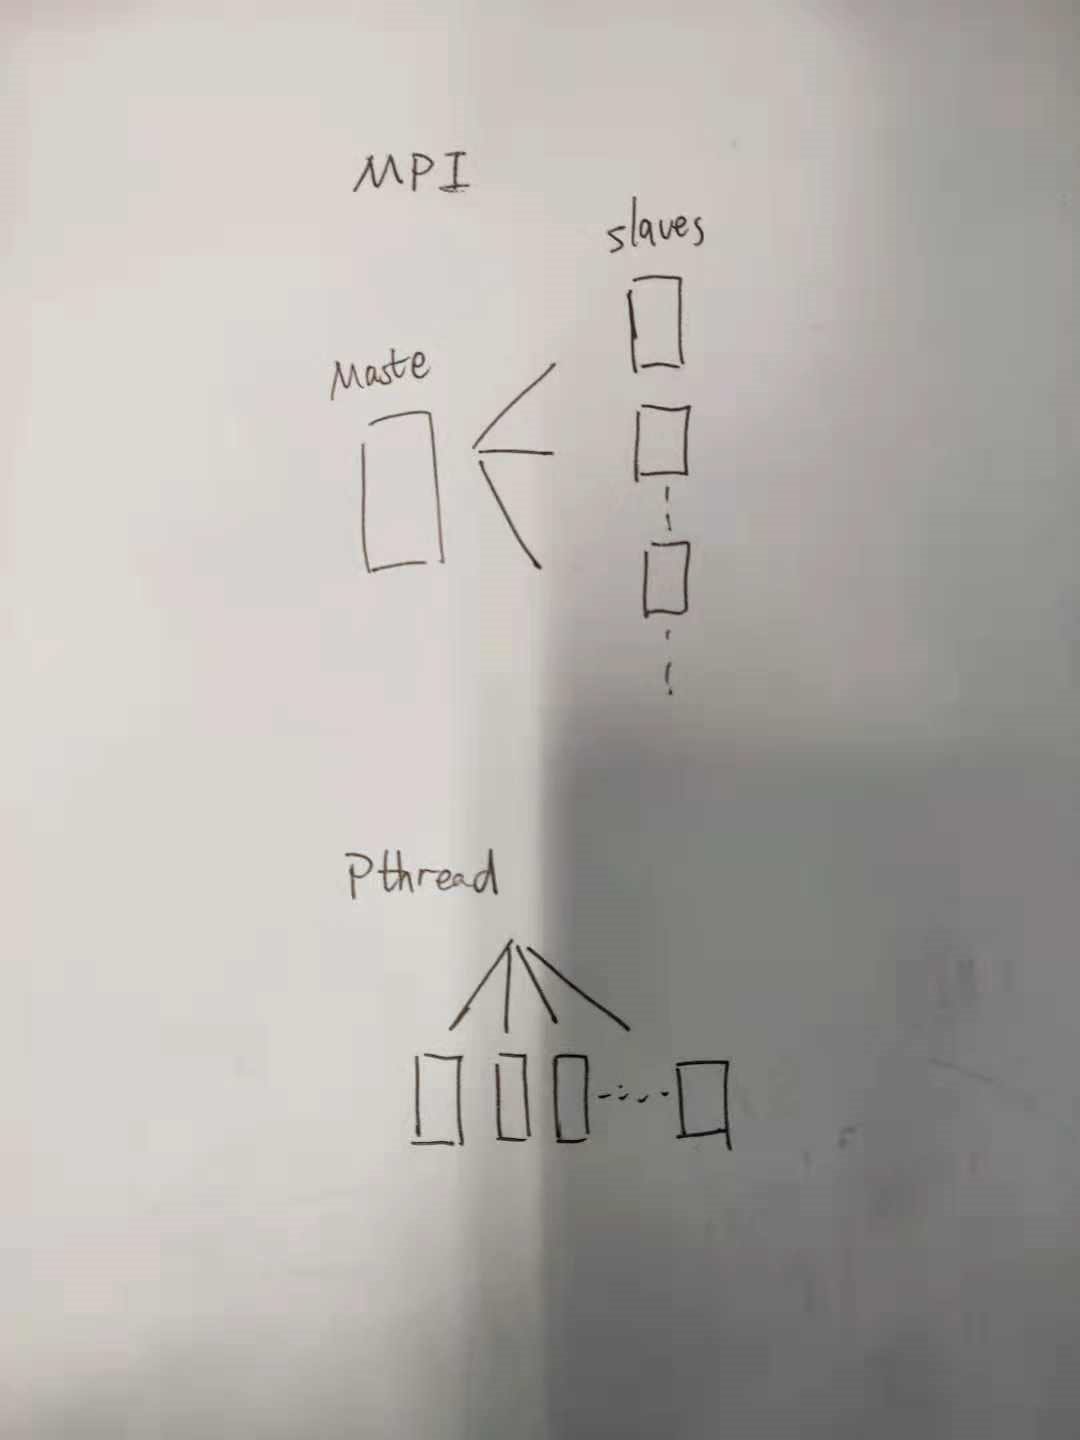 MPI
slaves
Maste
Pthread